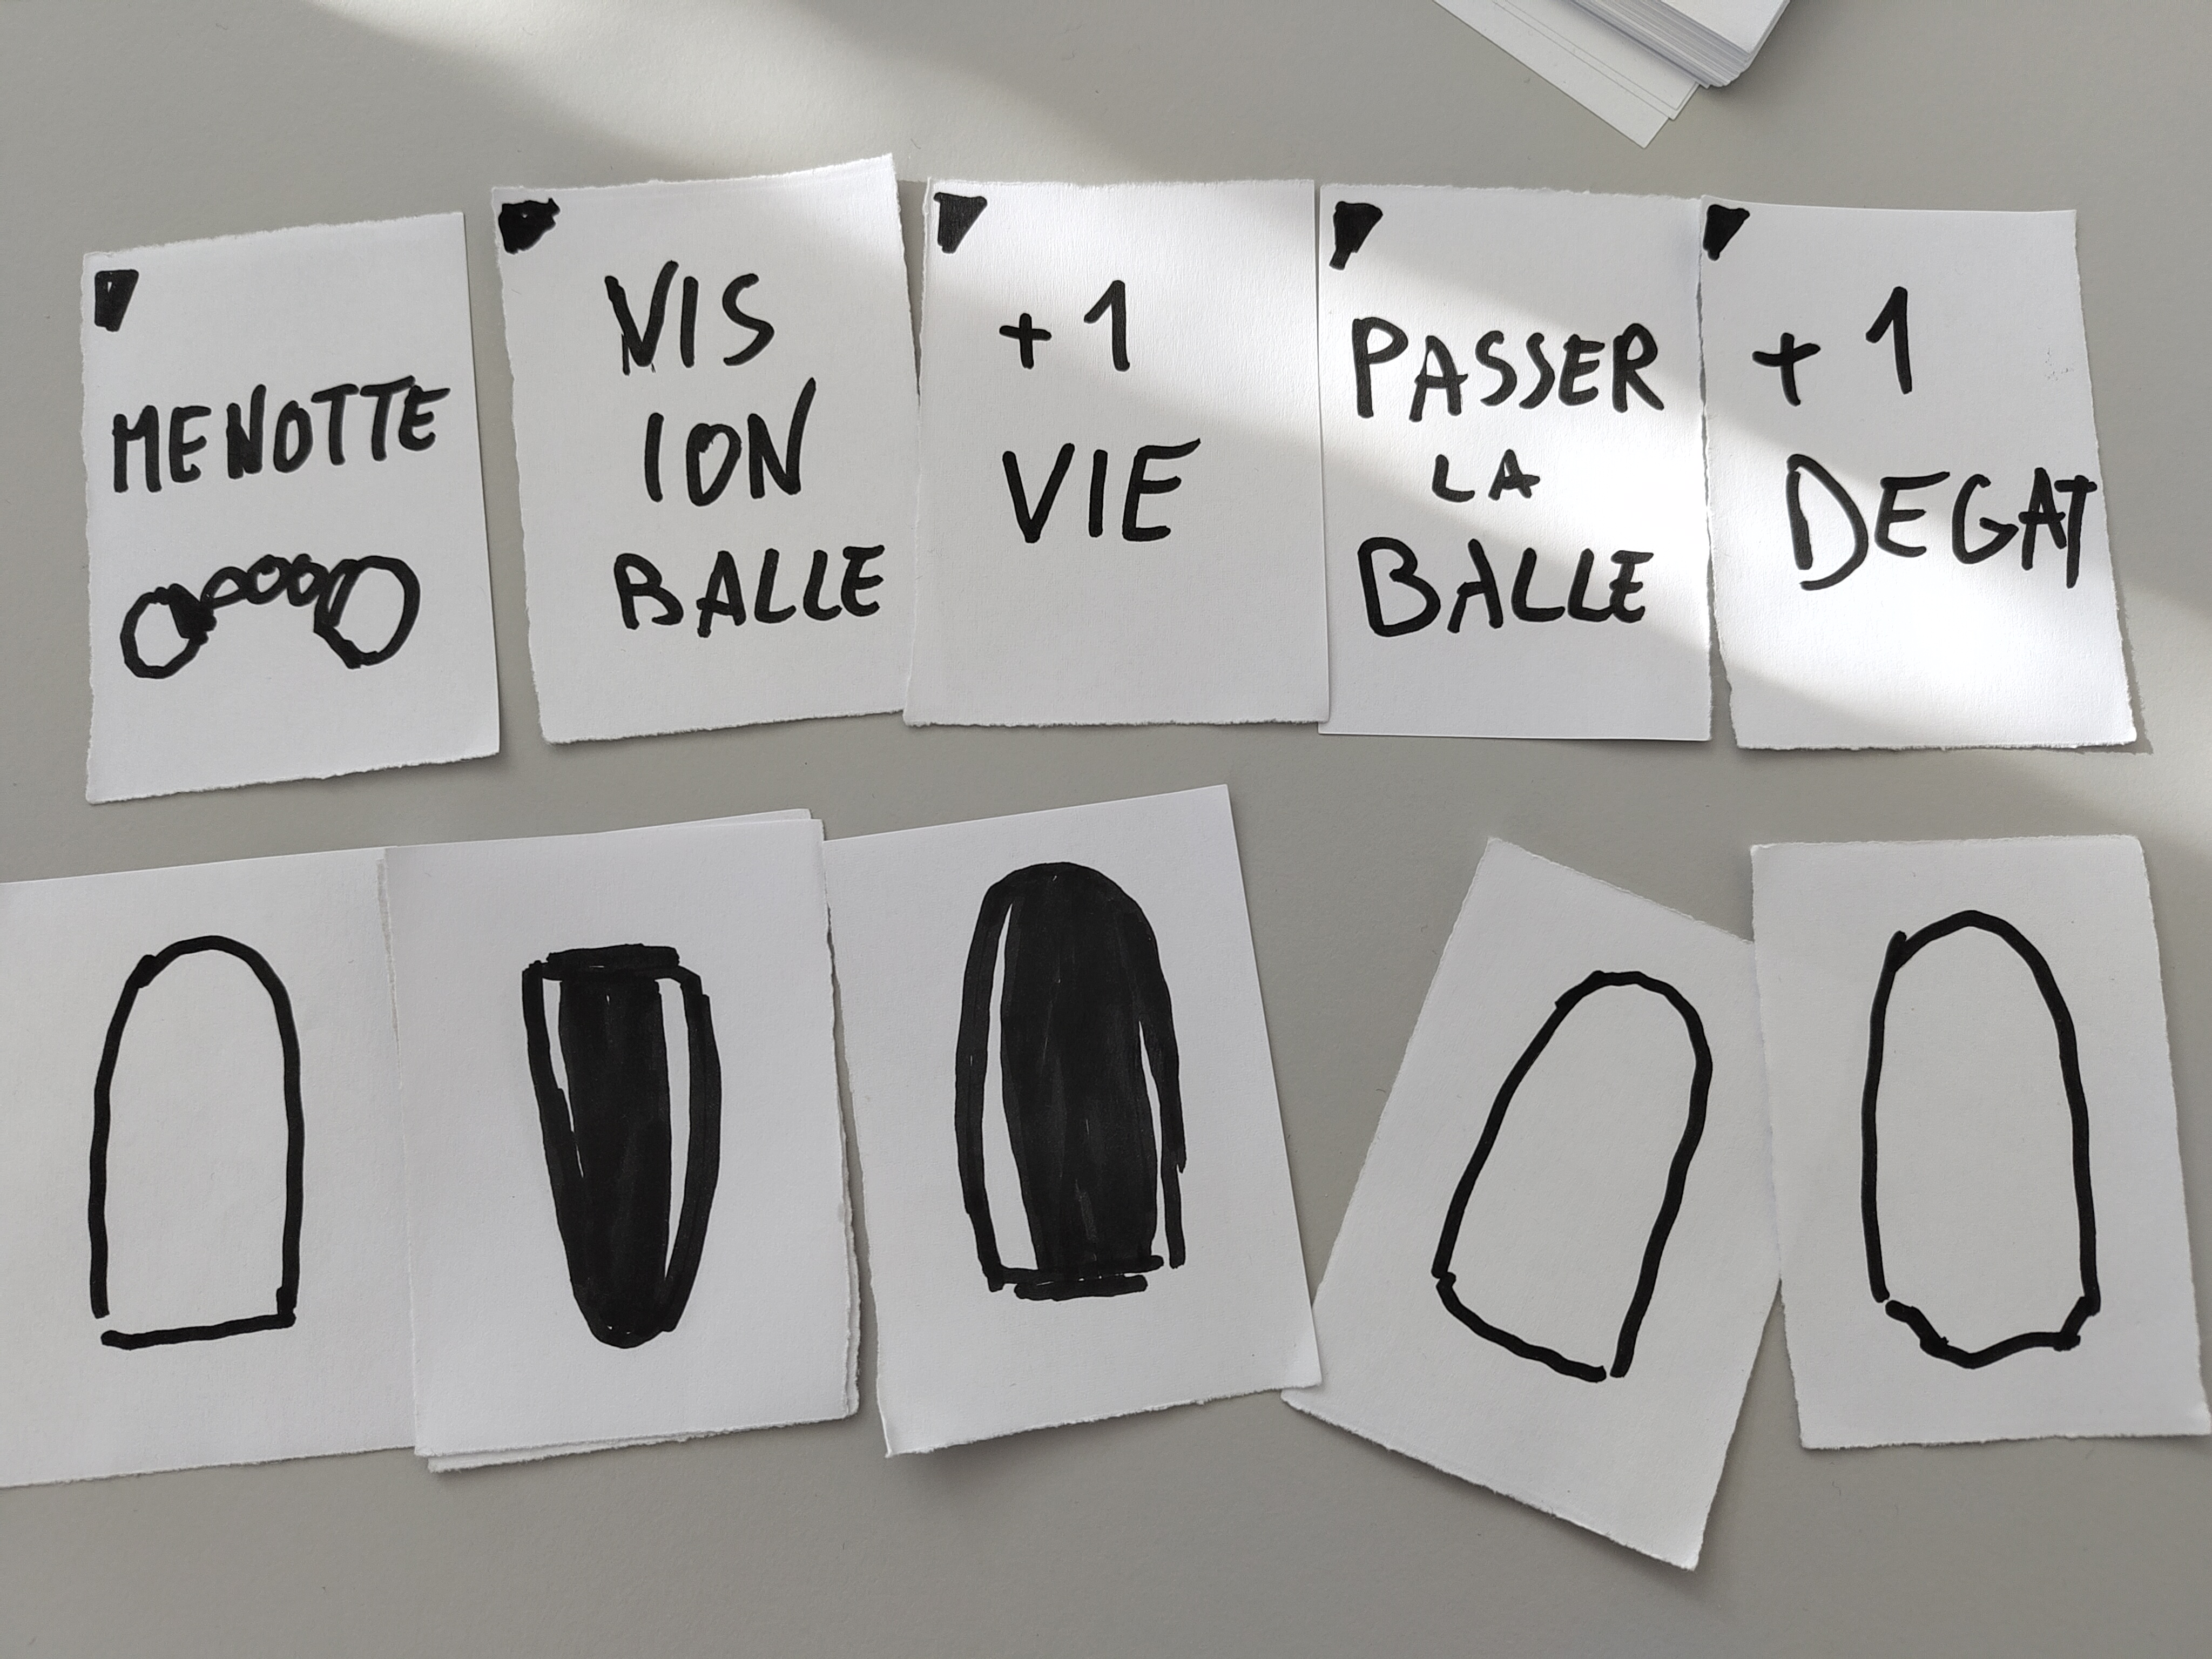 MENOTTE
VIS
ION
BALLE
+1
VIE
PASSER
LA
BALLE
+1
DEGAT